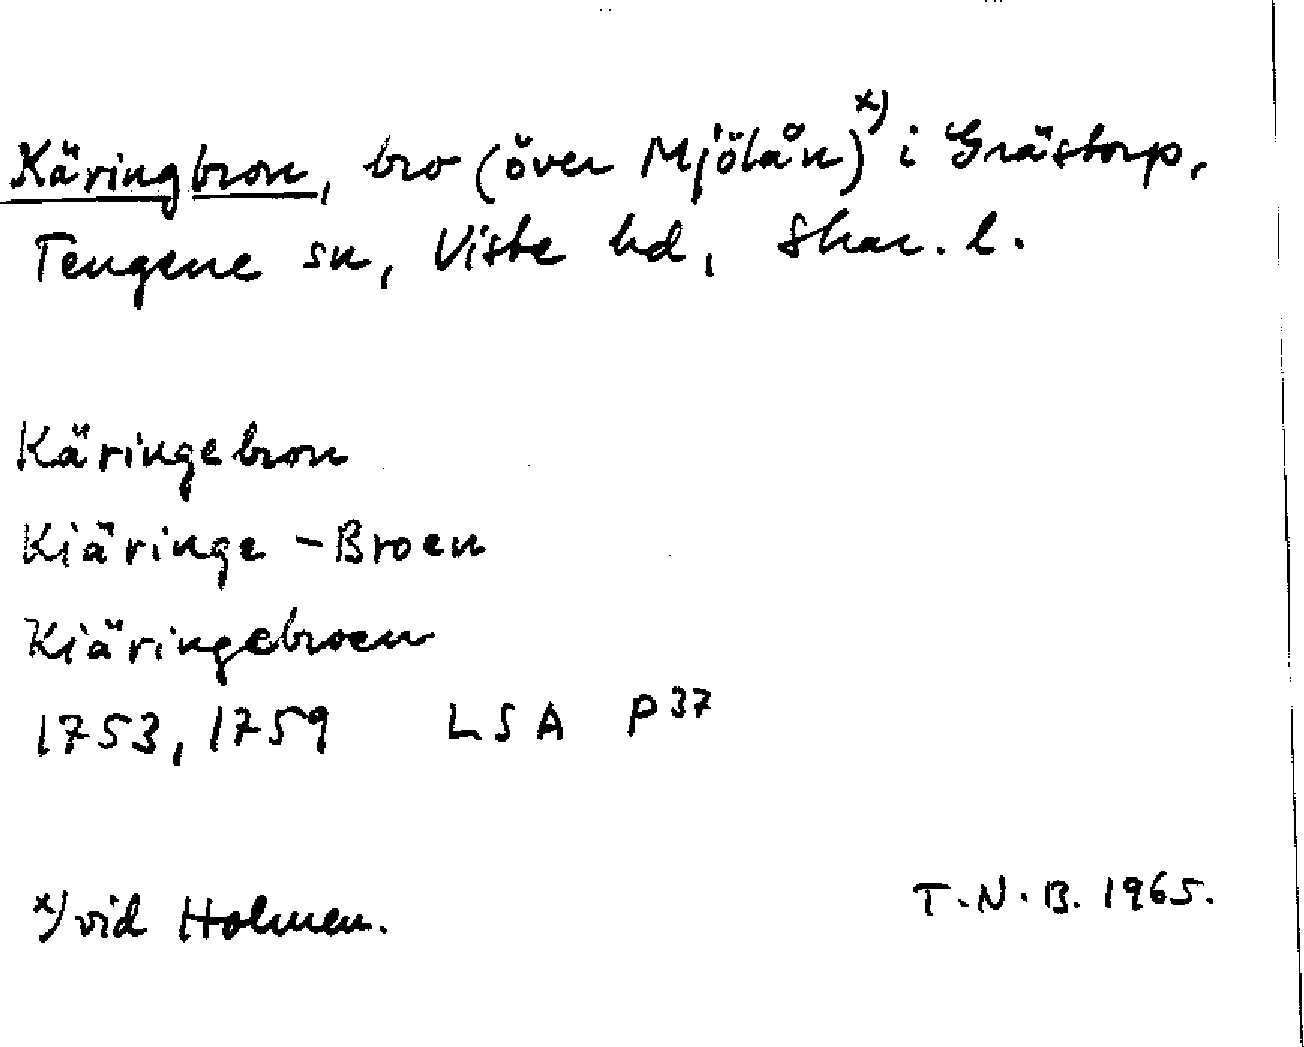 Käringbron, bro (över Mjölån)x) i Grästorp,
Tengene sn, Viste hd, Skar. l.
Käringebron
Kiäringe - Broen
Kiäringebroen
1753, 1759 LSA P 37
x) vid Holmen.
T.N.B. 1965.